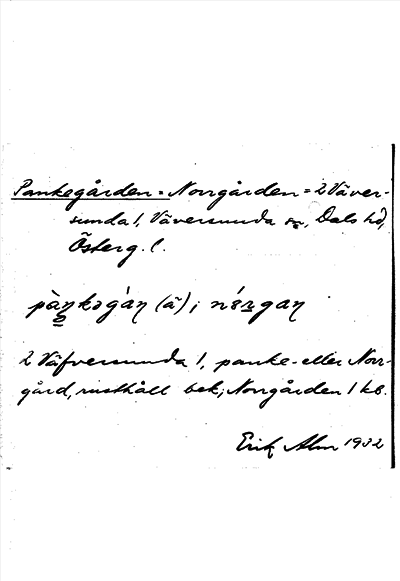 Pankegården = Norrgården = 2 Väver-
sunda 1, Väversunda sn, Dals hd,
Österg. l.
pàŋkogàn (ä) ; nórgan
2 Väfversunda 1, panke- eller Norr-
gård, rusthåll bek; Norrgården 1 kb.
Erik Alm 1932